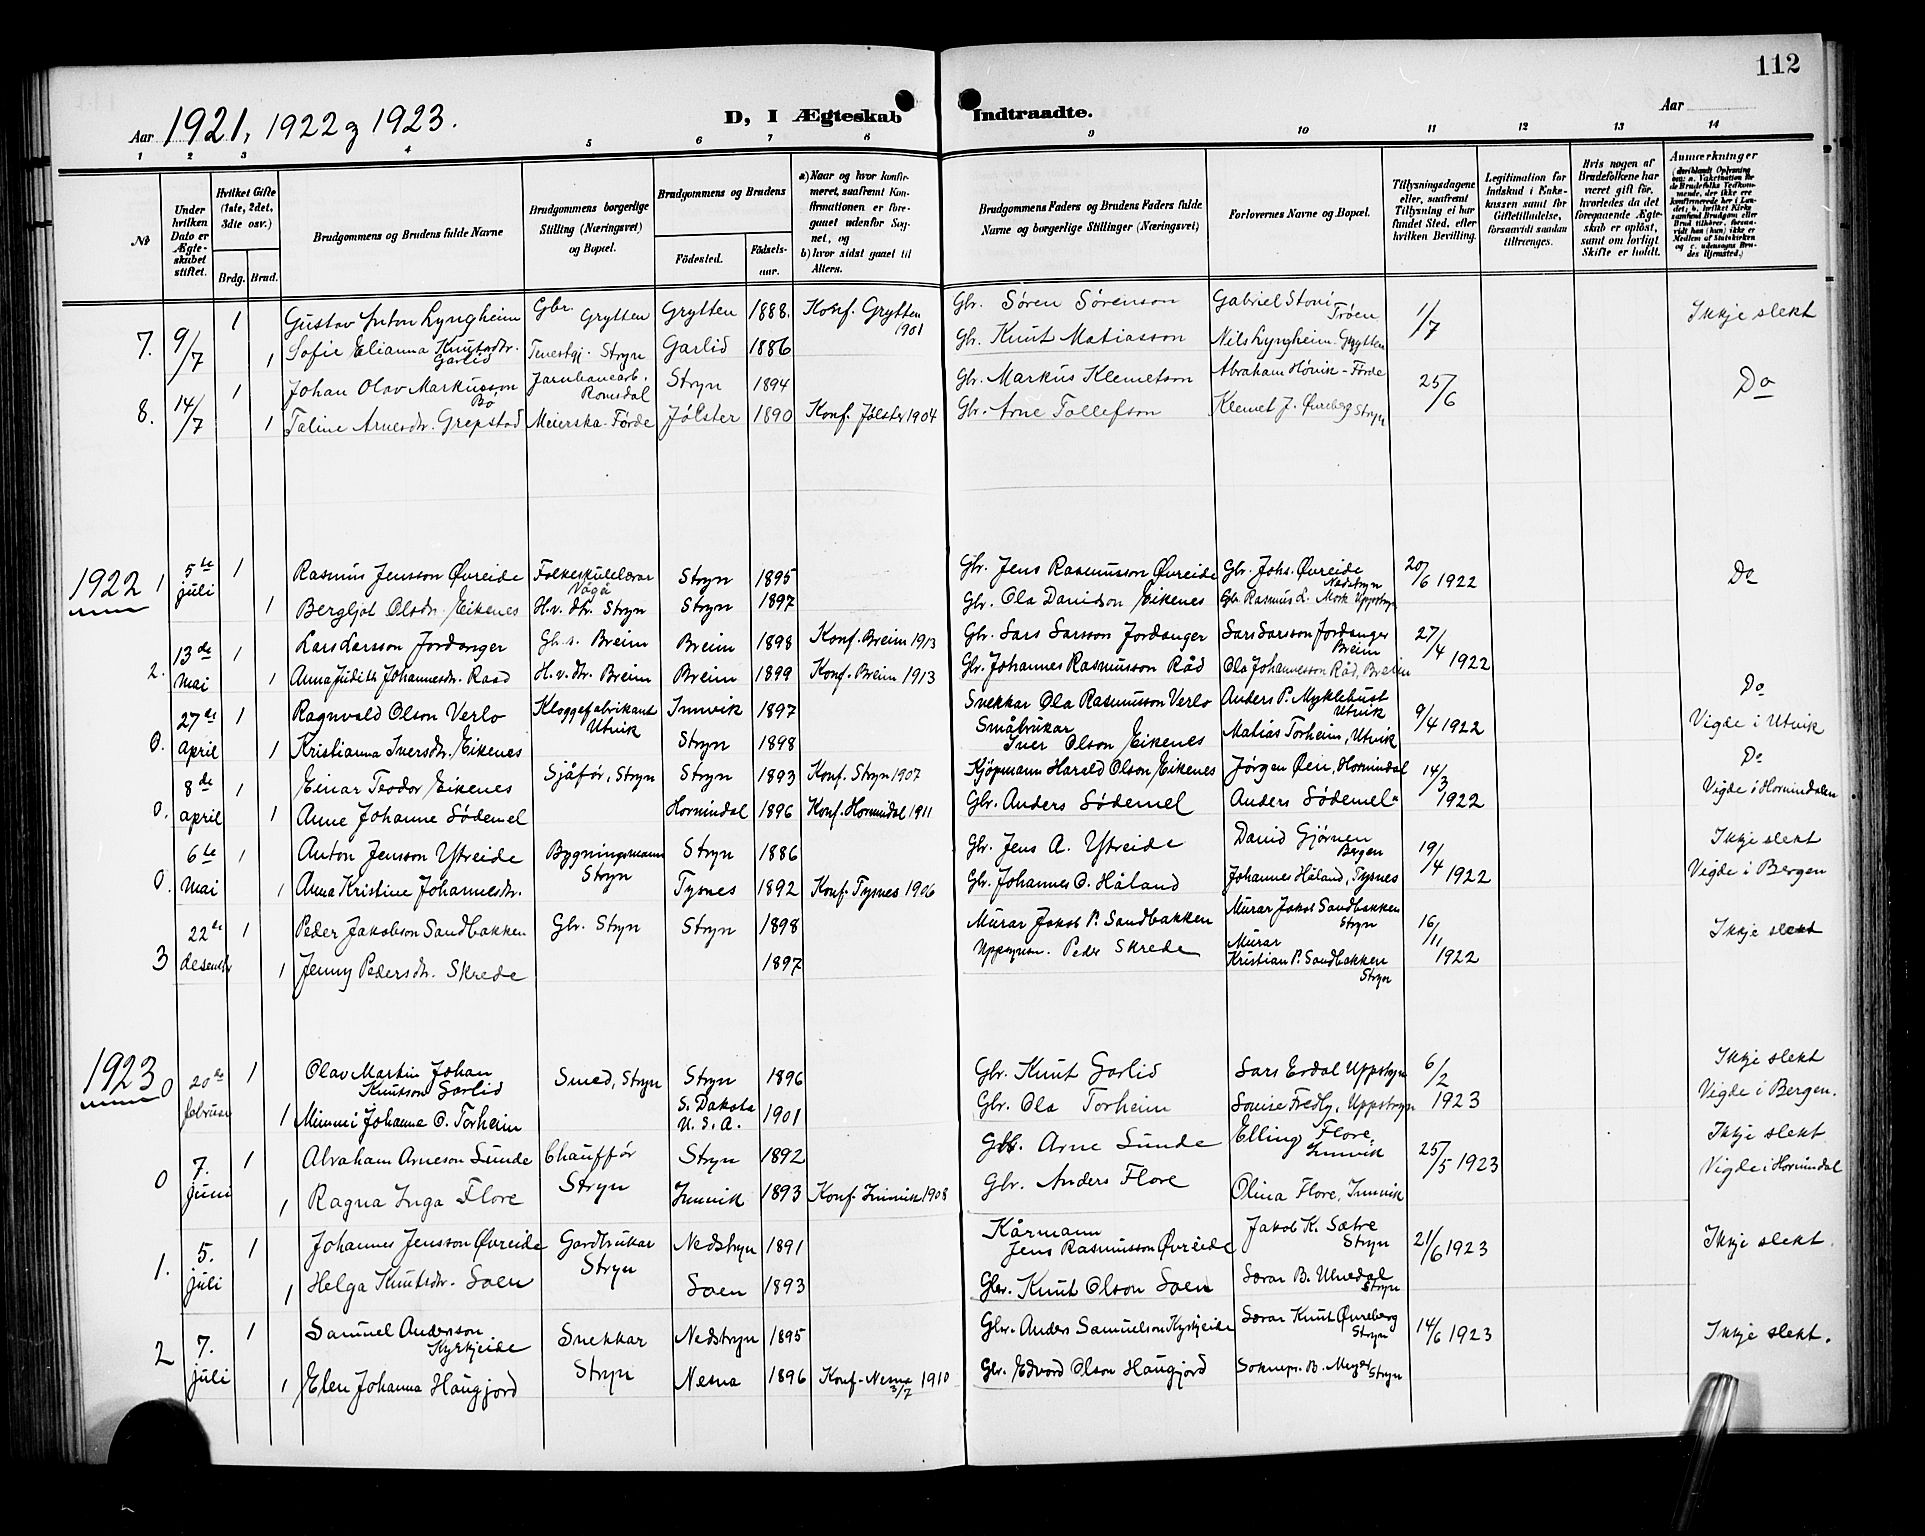 112
Aar 1921, 1922 og 1923.
D, I Ægteskab Indtraadte.
Aar
1 2 3 4 5 6 7 8 9 10 11 12 13 14
№
Under hvilken Dato er Ægteskabet stiftet.
Hvilket Gifte (1ste, 2det, 3die osv.)
Brdg. Brud.
Brudgommens og Brudens fulde Navne
Brudgommens borgerlige Stilling (Næringsvei) og Bopæl.
Brudgommens og Brudens
Födested.
Födselsaar.
a) Naar og hvor konfirmeret, saafremt Konfirmationen er foregaaet udenfor Sognet, og
b) hvor sidst gaaet til Alters.
Brudgommens Faders og Brudens Faders fulde Navne og borgerlige Stillinger (Næringsvei)
Forlovernes Navne og Bopæl.
Tillysningsdagene eller, saafremt Tillysning ei har fundet Sted, efter hvilken Bevilling.
Legitimation for Indskud i Enkekassen samt for Giftetilladelse, forsaavidt saadan tiltrænges.
Hvis nogen af Brudefolkene har været gift før, hvorledes da det foregaaende Ægteskab er opløst, samt om lovligt Skifte er holdt.
Anmærkninger
7. 9/7 1 Gustav Anton Lyngheim Gbr. Grytten Grytten 1888. Konf. Grytten 1901 Gbr. Søren Sørenson Gabriel Stovi Trøen 1/7 Ikkje slekt
1 Sofie Elianna Knutsdtr. Garlid Tenestgj. Stryn Garlid 1886 Gbr. Knut Matiasson Nils Lyngheim. Grytten
8. 14/7 1 Johan Olav Markusson Bø Jarnbanearb. Romsdal Stryn 1894 Gbr. Markus Klemetson Abraham Høvik - Førde 25/6 Do
1 Taline Arnesdtr. Grepstad Meierska. Førde Jølster 1890 Konf. Jølster 1904 Gbr. Arne Tollefson Klemet J. Øvreberg Stryn
1922 1 5te juli 1 Rasmus Jensson Øvreide Folkeskulelærar Vågå Stryn 1895 Gbr. Jens Rasmusson Øvreide Gbr. Johs. Øvreide Nedstryn 20/6 1922 Do
1 Bergljot Olsdtr. Eikenes H.v. dtr. Stryn Stryn 1897 Gbr. Ola Davidson Eikenes Gbr. Rasmus L. Mork Uppstryn
2. 13de mai 1 Lars Larsson Jordanger Gb.s. Breim Breim 1898 Konf. Breim 1913 Gbr. Lars Larsson Jordanger Lars Larsson Jordanger Breim 27/4 1922
1 Anna Judith Johannesdtr. Raad H.v. dtr. Breim Breim 1899 Konf. Breim 1913 Gbr. Johannes Rasmusson Råd Ola Johannesson Råd, Breim
0. 27de april 1 Ragnvald Olson Verlo Kloggefabrikant Utvik Innvik 1897 Snekkar Ola Rasmusson Verlo Anders P. Myklebust Utvik 9/4 1922 Do
1 Kristianna Iversdtr. Eikenes Stryn 1898 Småbrukar Iver Olson Eikenes Matias Torheim, Utvik Vigde i Utvik
0. 8de april 1 Einar Teodor Eikenes Sjåfør, Stryn Stryn 1893 Konf. Stryn 1907 Kjøpmann Harald Olson Eikenes Jørgen Øen, Hornindal 14/3 1922 Do
1 Anne Johanne Lødemel Hornindal 1896 Konf. Hornindal 1911 Gbr. Anders Lødemel Anders Lødemel " Vigde i Hornindalen
0. 6te mai 1 Anton Jensson Ytreide Bygningsmann Stryn Stryn 1886 Gbr. Jens A. Ytreide David Gjørven Bergen 19/4 1922 Ikkje slekt
1 Anna Kristine Johannesdtr. Tysnes 1892 Konf. Tysnes 1906 Gbr. Johannes O. Håland Johannes Håland, Tysnes Vigde i Bergen
3 22de desember 1 Peder Jakobson Sandbakken Gbr. Stryn Stryn 1898 Murar Jakob P. Sandbakken Murar Jakob Sandbakken Stryn 16/11 1922 Ikkje slekt
1 Jenny Pedersdtr. Skrede 1897 Uppsynsm. Peder Skrede Murar Kristian P. Sandbakken Stryn
1923 0 20de februar 1 Olav Martin Johan Knutson Garlid Smed, Stryn Stryn 1896 Gbr. Knut Garlid Lars Erdal Uppstryn 6/2 1923 Ikkje slekt
1 Mimmi Johanne O. Torheim S. Dakota U.S.A. 1901 Gbr. Ola Torheim Louise Fredly, Uppstryn Vigde i Bergen.
0 7. juni 1 Abraham Arneson Sunde Chauffør Stryn Stryn 1892 Gbr. Arne Sunde Elling Flore, Innvik 25/5 1923 Ikkje slekt
1 Ragna Inga Flore Innvik 1893 Konf. Innvik 1908 Gbr. Anders Flore Olina Flore, Innvik Vigde i Hornindal
1. 5. juli 1 Johannes Jensson Øvreide Gardbrukar Stryn Nedstryn 1891 Kårmann Jens Rasmusson Øvreide Jakob K. Sætre Stryn 21/6 1923 Ikkje slekt.
1 Helga Knutsdtr. Loen Loen 1893 Gbr. Knut Olson Loen Lærar B. Ulvedal Stryn
2 7. juli 1 Samuel Anderson Kyrkjeide Snekkar Stryn Nedstryn 1895 Gbr. Anders Samuelson Kyrkjeide Lærar Knut Øvreberg Stryn 14/6 1923 Ikkje slekt.
1 Elen Johanna Haugjord Nesna 1896 Konf. Nesna 3/7 1910 Gbr. Edvard Olson Haugjord Soknepr. B. Meyer Stryn